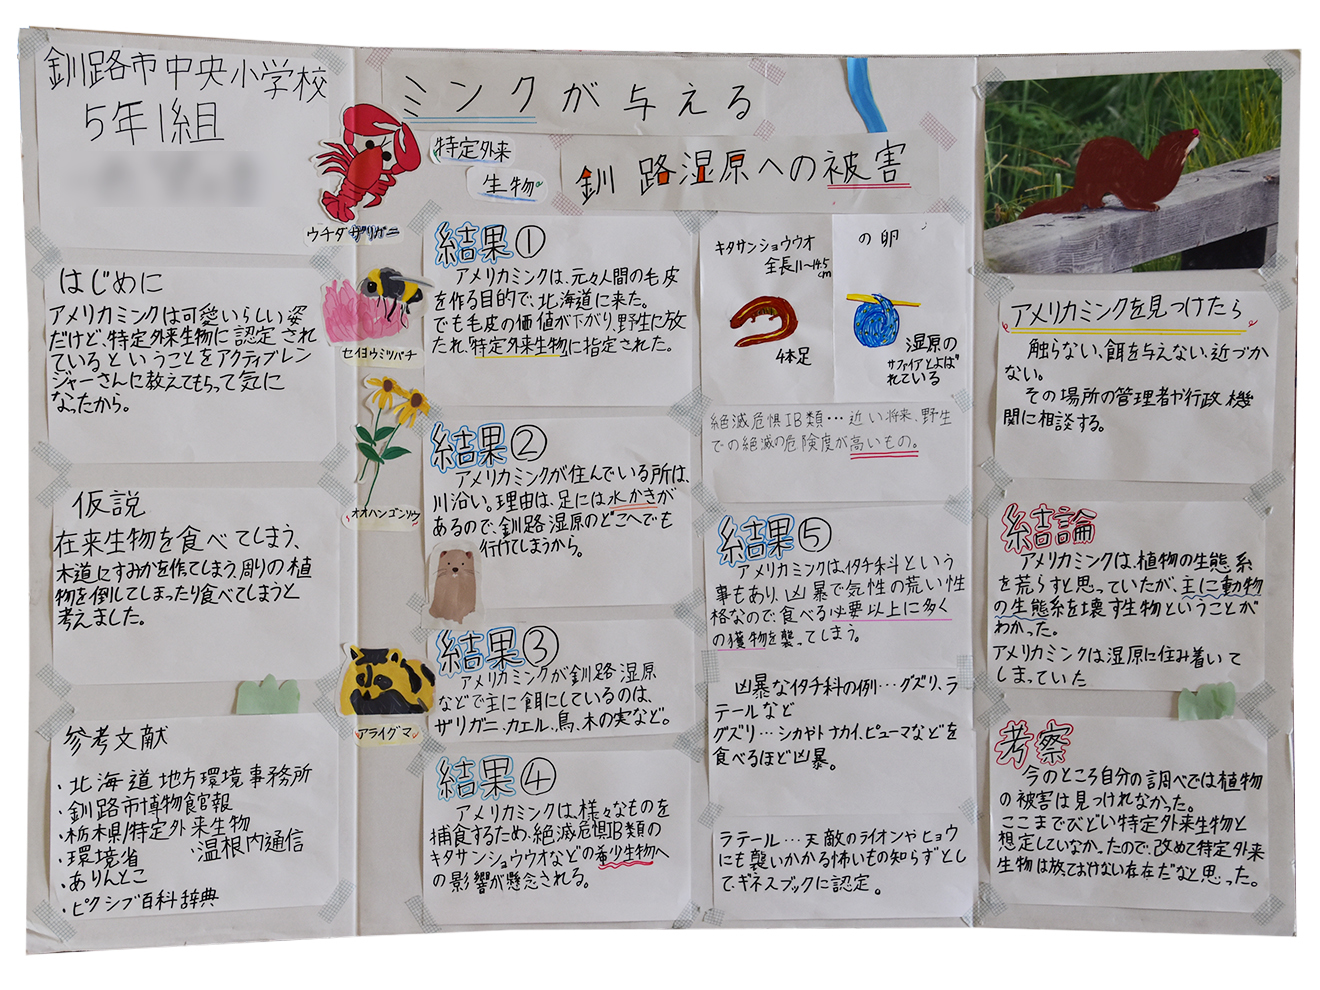 釧路市中央小学校
5年1組
ミンクが与える
特定外来
生物
釧路湿原への被害
はじめに
アメリカミンクは可愛いらしい姿
だけど、特定外来生物に認定され
ているということをアクティブレン
ジャーさんに教えてもらって気に
なったから。
仮説
在来生物を食べてしまう、
木道にすみかを作てしまう、周りの植
物を倒してしまったり食べてしまうと
考えました。
参考文献
・北海道地方環境事務所
・釧路市博物館報
・栃木県/特定外来生物
・環境省
・温根内通信
・ありんとこ
・ピクシブ百科辞典
ウチダザリガニ
セイヨウミツバチ
オオハンゴンソウ
アライグマ
結果①
アメリカミンクは、元々人間の毛皮
を作る目的で、北海道に来た。
でも毛皮の価値が下がり、野生に放
たれ、「特定外来生物」に指定された。
結果②
アメリカミンクが住んでいる所は、
川沿い。理由は、足には水かきが
あるので、釧路湿原のどこへでも
行けてしまうから。
結果③
アメリカミンクが釧路湿原
などで主に餌にしているのは、
ザリガニ、カエル、鳥、木の実など。
結果④
アメリカミンクは、様々なものを
捕食するため、絶滅危惧IB類の
キタサンショウウオなどの希少生物へ
の影響が懸念される。
キタサンショウウオ
全長11~14.5
cm
4本足
の卵
湿原の
サファイアとよば
れている
絶滅危惧IB類…近い将来、野生
での絶滅の危険度が高いもの。
結果⑤
アメリカミンクは、イタチ科という
事もあり、凶暴で気性の荒い性
格なので、食べる必要以上に多く
の獲物を襲ってしまう。
凶暴なイタチ科の例…グズリ、ラ
テールなど
グズリ…シカやトナカイ、ピューマなどを
食べるほど凶暴。
ラテール…天敵のライオンやヒョウ
にも襲いかかる怖いもの知らずとし
てギネスブックに認定。
アメリカミンクを見つけたら
触らない、餌を与えない、近づか
ない。
その場所の管理者や行政機
関に相談する。
結論
アメリカミンクは、植物の生態系
を荒らすと思っていたが、主に動物
の生態系を壊す生物ということが
わかった。
アメリカミンクは湿原に住み着いて
しまっていた
考察
今のところ自分の調べでは植物
の被害は見つけれなかった。
ここまでひどい特定外来生物と
想定していなかったので、改めて特定外来
生物は放ておけない存在だなと思った。